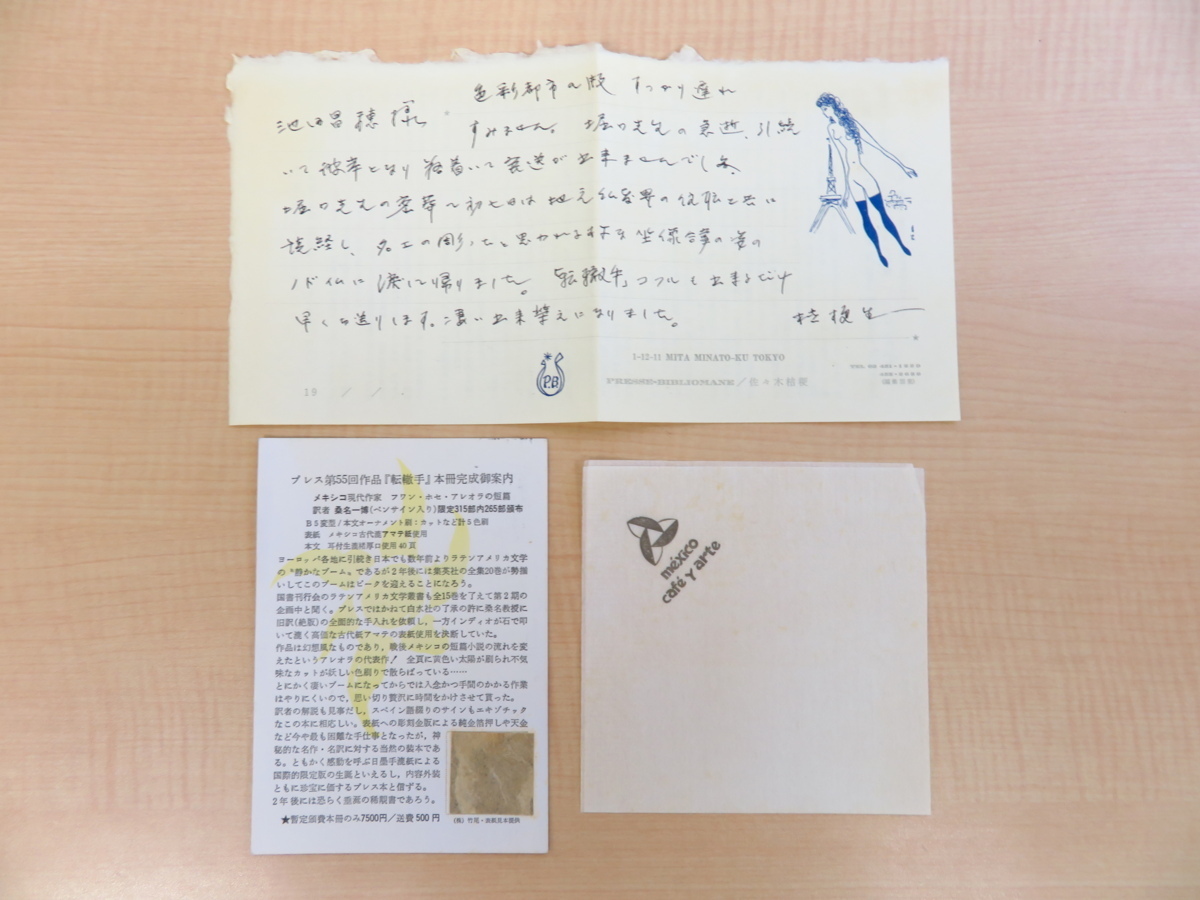 色彩都市の版 すっかり遅れ
池田昌穂様
すみません。堀口先生の急逝、引続
いて彼岸となり落着いて発送が出来ませんでした。
堀口先生の密葬〜初七日は地元仏教界の
読経し、名工の彫ったと思われる様な坐像合掌の姿の
ノドイ仏に涙して帰りました。「転轍手」コフルも出来るだけ
早くお送りします。凄い出来栄えになりました。
桔梗生
1-12-11 MITA MINATO-KU TOKYO
P.B
PRESSE・BIBLIOMANE／佐々木桔梗
19 / / .
プレス第55回作品『転轍手』本冊完成御案内
メキシコ現代作家 フワン・ホセ・アレオラの短篇
訳者 桑名一博(ペンサイン入り)限定315部内265部頒布
B5変型/本文オーナメント刷：カットなど計5色刷
表紙 メキシコ古代漉アマテ紙使用
本文 耳付生漉経厚口使用40頁
ヨーロッパ各地に引続き日本でも数年前よりラテンアメリカ文学
の〝静かなブーム〟であるが2年後には集英社の全集20巻が勢揃
いしてこのブームはピークを迎えることになろう。
国書刊行会のラテンアメリカ文学叢書も全15巻を了えて第2期の
企画中と聞く。プレスではかねて白水社の了承の許に桑名教授に
旧訳(絶版)の全面的な手入れを依頼し、一方インディオが石で叩
いて漉く高価な古代紙アマテの表紙使用を決断していた。
作品は幻想風なものであり、戦後メキシコの短篇小説の流れを変
えたというアレオラの代表作！ 全頁に黄色い太陽が刷られ不気
味なカットが妖しい色刷りで散らばっている……
とにかく凄いブームになってからでは入念かつ手間のかかる作業
はやりにくいので、思い切り贅沢に時間をかけさせて貰った。
訳者の解説も見事だし、スペイン語綴りのサインもエキゾチック
なこの本に相応しい。表紙への彫刻金版による純金箔押しや天金
など今や最も困難な手仕事となったが、神
秘的な名作・名訳に対する当然の装本であ
る。ともかく感動を呼ぶ日墨手漉紙による
国際的限定版の生誕といえるし、内容外装
ともに珍宝に価するプレス本と信ずる。
2年後には恐らく垂涎の稀覯書であろう。
★暫定頒費本冊のみ7500円／送費500円
(株)竹尾・表紙見本提供
méxico
café y arte